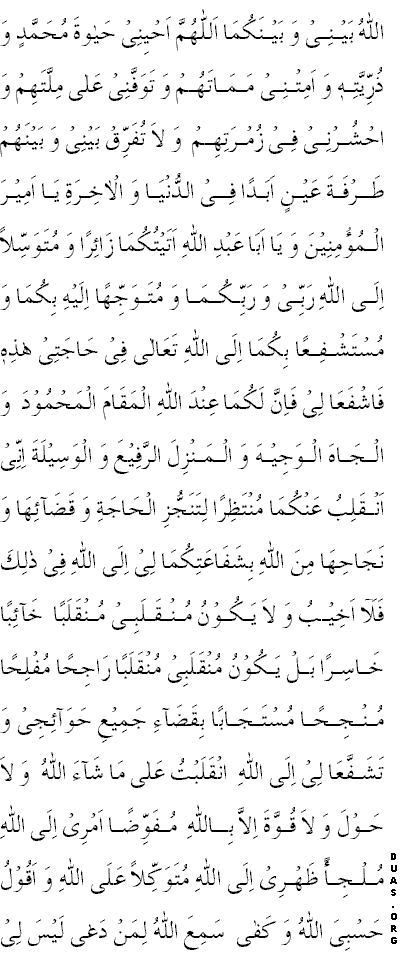 اللّٰهُ بَيْـنِـىْ وَ بَيْـنَـكُمَا اَللّٰهُمَّ اَحْيِنِىْ حَيٰوةَ مُحَمَّدٍ وَ
ذُرِّيَّتِـهٖ وَ اَمِتْـنِـىْ مَـمَـاتَهُـمْ وَ تَوَفَّنِىْ عَلٰى مِلَّتِهِمْ وَ
احْشُـرْنِـىْ فِـىْ زُمْـرَتِهِـمْ وَ لَا تُفَرِّقْ بَيْنِىْ وَ بَيْنَهُمْ
طَـرْفَـةَ عَيْـنٍ اَبَـدًا فِـى الدُّنْيَـا وَ الْاٰخِـرَةِ يَـا اَمِيْـرَ
الْـمُؤْمِنِيْنَ وَ يَا اَبَا عَبْدِ اللهِ اَتَيْتُكُمَا زَائِرًا وَ مُتَوَسِّلاً
اِلَـى اللهِ رَبِّـىْ وَ رَبِّـكُـمَـا وَ مُتَـوَجِّهًا اِلَيْهِ بِكُمَا وَ
مُسْتَشْـفِـعًا بِكُمَا اِلَى اللهِ تَعَالٰى فِىْ حَاجَتِىْ هٰذِهٖ
فَاشْفَعَا لِىْ فَاِنَّ لَكُمَا عِنْدَ اللهِ الْمَقَامَ الْمَحْمُوْدَ وَ
الْـجَـاهَ الْـوَجِيْـهَ وَ الْـمَـنْـزِلَ الرَّفِيْعَ وَ الْوَسِيْلَةَ اِنِّىْ
اَنْـقَلِبُ عَنْكُمَا مُنْتَظِرًا لِتَنَجُّزِ الْحَاجَةِ وَ قَضَآئِهَا وَ
نَجَاحِهَا مِنَ اللهِ بِشَفَاعَتِكُمَا لِىْ اِلَى اللهِ فِىْ ذٰلِكَ
فَلَآ اَخِيْـبُ وَ لَا يَـكُـوْنُ مُـنْـقَـلَبِـىْ مُـنْقَلَبًا خَآئِبًا
خَـاسِـرًا بَـلْ يَـكُوْنُ مُنْقَلَبِىْ مُنْقَلَبًا رَاجِحًا مُفْلِحًا
مُـنْـجِـحًـا مُسْتَـجَـابًا بِقَضَآءِ جَمِيْعِ حَوَآئِجِىْ وَ
تَشَـفَّعَا لِىْ اِلَى اللهِ انْقَلَبْتُ عَلٰى مَا شَآءَ اللهُ وَ لَا
حَـوْلَ وَ لَا قُـوَّةَ اِلاَّ بِـاللهِ مُـفَـوِّضًـا اَمْرِىْ اِلَى اللهِ
مُـلْـجِـأً ظَهْـرِىْ اِلَى اللهِ مُتَوَكِّلاً عَلَى اللهِ وَ اَقُوْلُ
حَسْبِىَ اللهُ وَ كَفٰى سَمِعَ اللهُ لِمَنْ دَعٰى لَيْسَ لِىْ
DUAS.ORG